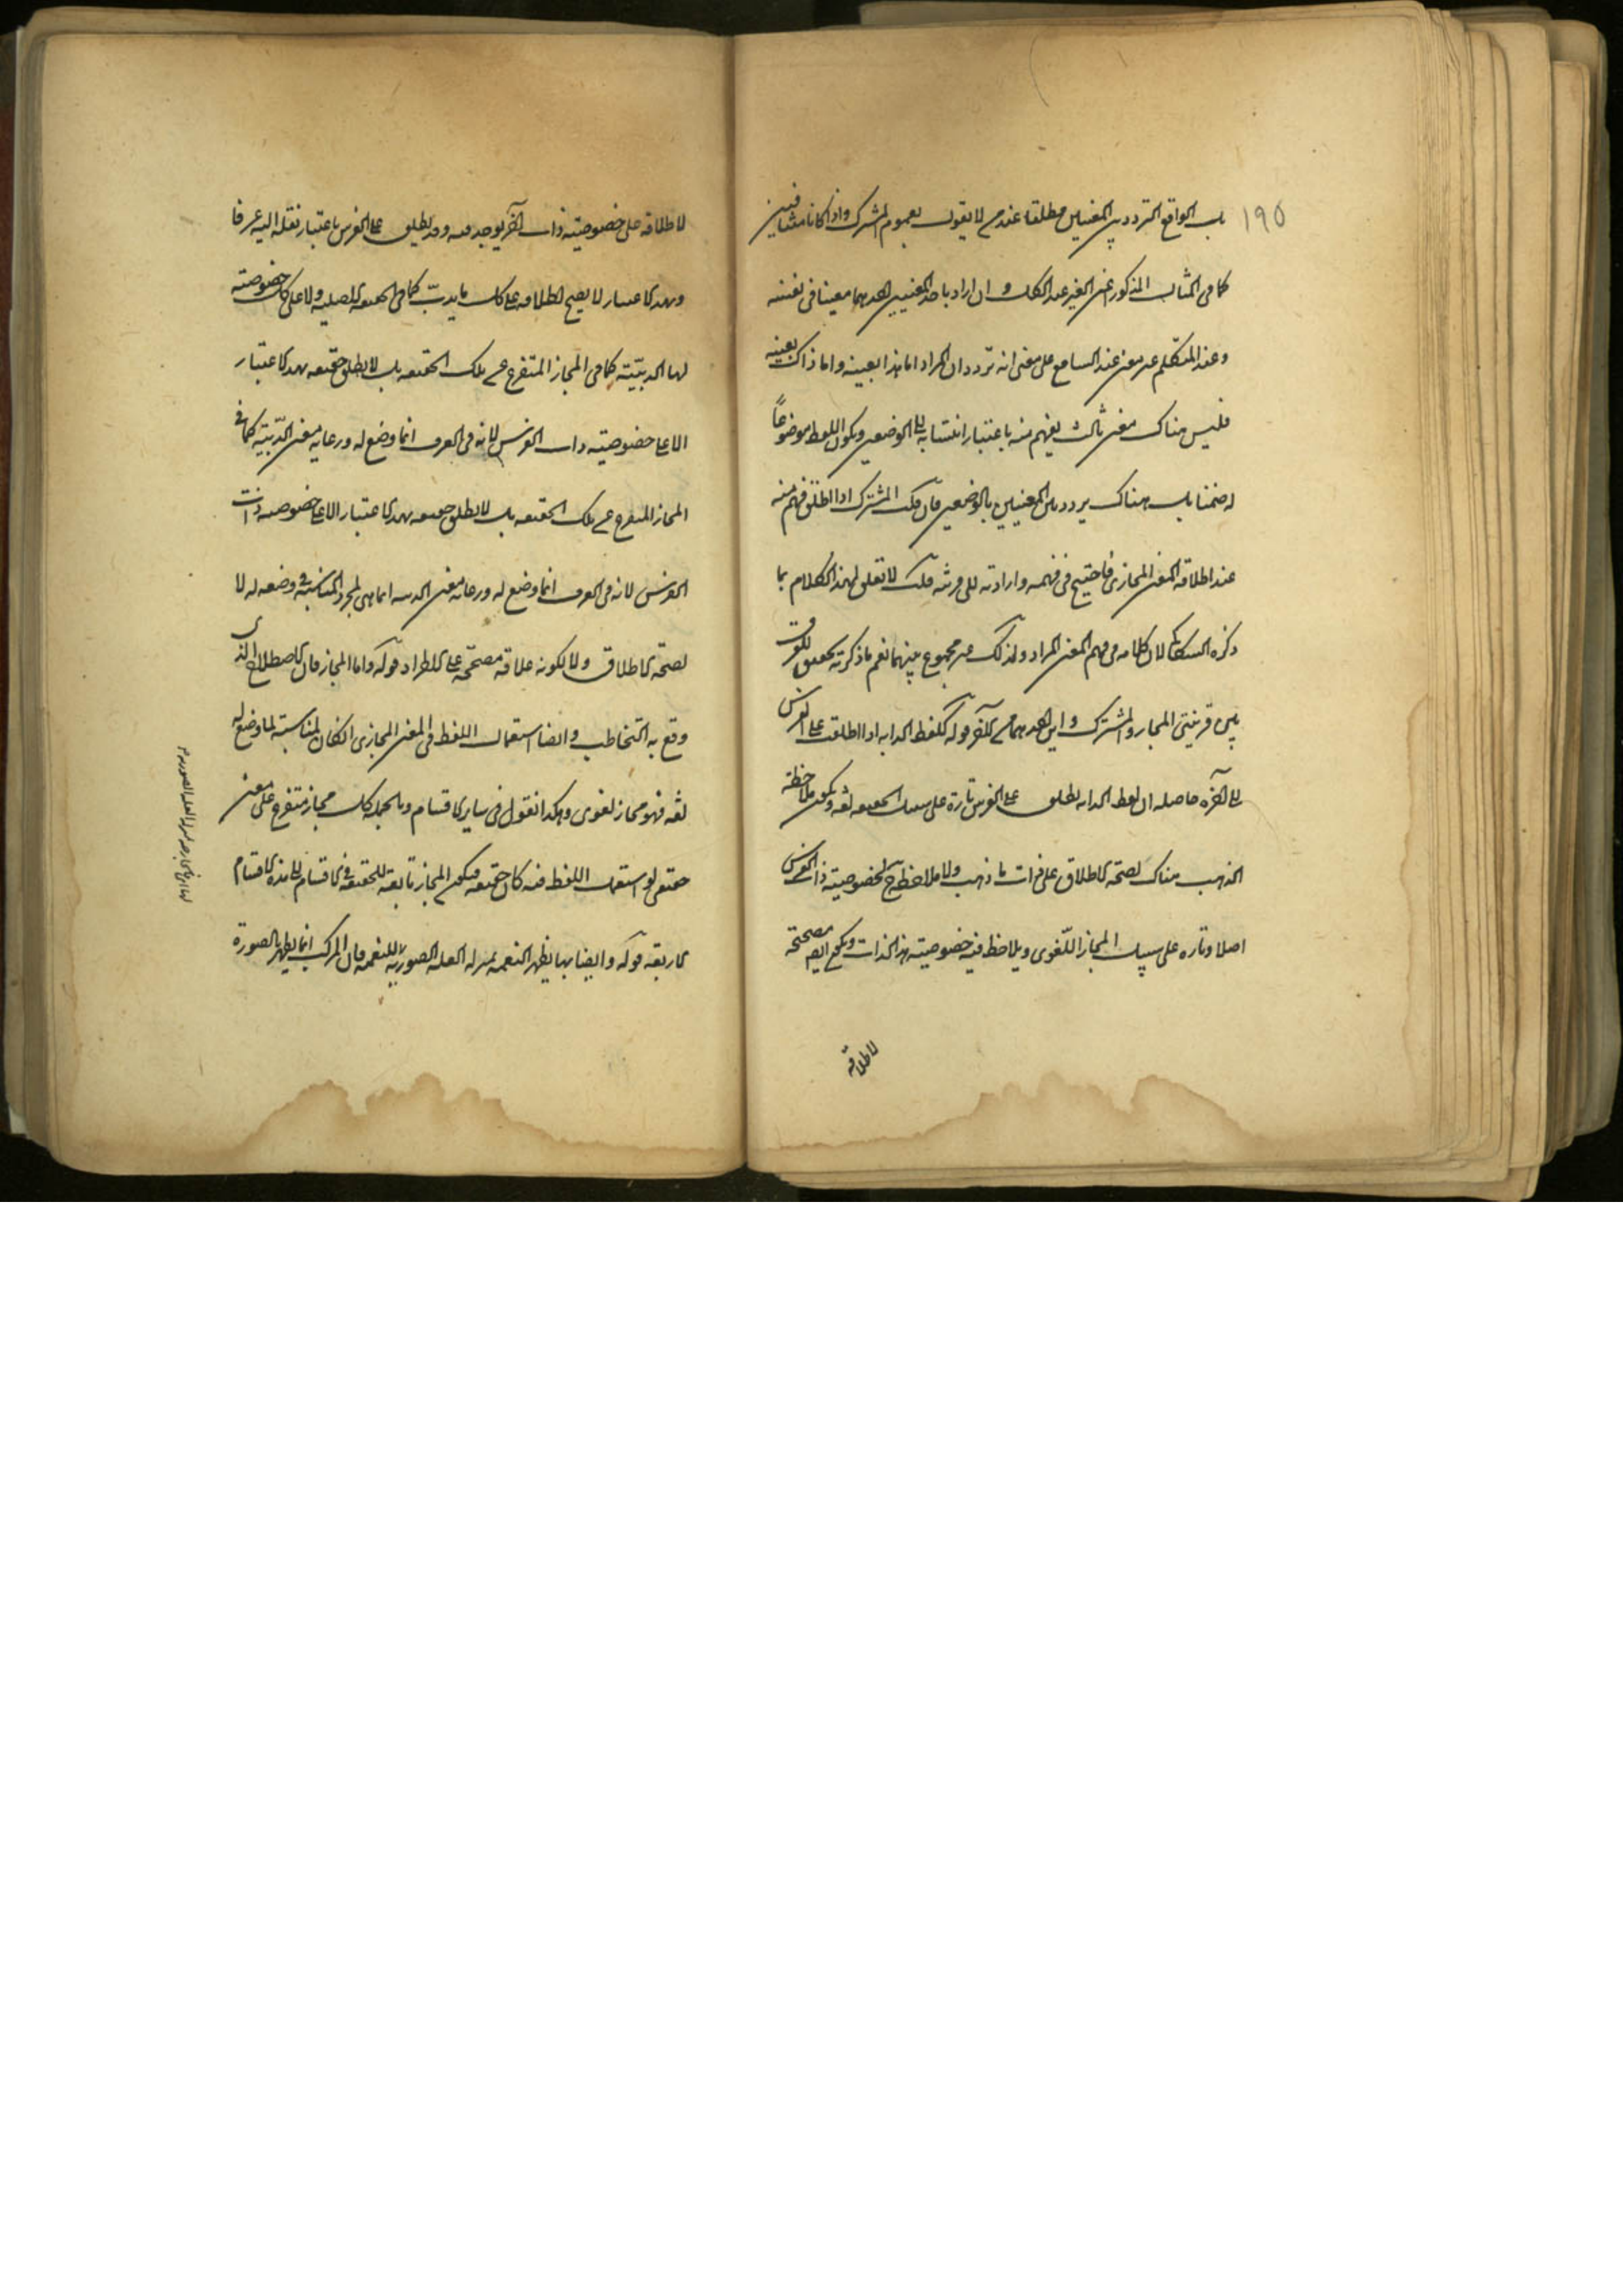 ١٩٥
بل الواقع التردد بين المعنيين مطلقا عند من لا يقول بعموم المشترك واذا كانا متنافيين
كما فى المثال المذكور اعنى عند الكل و ان اراد باحد المعنيين احدهما معينا فى نفسه
وعند المتكلم غير معين عند السامع على معنى انه تردد ان المراد اما هذا بعينه واما ذاك بعينه
فليس هناك معنى ثالث يفهم منه باعتبار انتسابه الى الوضعين ويكون اللفظ موضوعاً
له ضمنا بل هناك تردد بين المعنيين بالوضعين فان قلت المشترك اذا اطلق فهم منه
عند اطلاقه المعنى المجازى فاحتيج فى فهمه وارادته الى قرينة قلت لا تعلق لهذا الكلام بما
ذكره السكاكى لان كلامه فى فهم المعنى المراد وذلك من مجموع بينهما نعم ما ذكرته تحقيق للفرق
بين قرينتى المجاز والمشترك و احدهما من الآخر قوله كلفظ الدابة اذا اطلقت على الفرس
الى آخره حاصله ان لفظ الدابة يطلق على الفرس تارة على سبيل الحقيقة لغة ويكون ملاحظة
هناك لصحة الاطلاق على ذات ما ولا ملاحظة ح لخصوصية ذات الفرس
اصلا وتارة على سبيل المجاز اللغوى ويلاحظ فيه خصوصية هذا الذات مصححة
لاطلاقه
لاطلاقه على خصوصية ذات آخر يوجد فيه وقد يطلق على الفرس باعتبار نقله اليه عرفا
وبهذا الاعتبار لا يصح اطلاقه على كل ما يدبّ كما فى الحقيقة الاصلية ولا على كل خصوصية
لها الدبيبية كما فى المجاز المتفرع على تلك الحقيقة بل لا يطلق حقيقة بهذا الاعتبار
الا على خصوصية ذات الفرس لانه فى العرف انما وضع له ورعاية معنى الدبيبية كما فى
المجاز المتفرع على تلك الحقيقة بل لا يطلق حقيقة بهذا الاعتبار الا على خصوصية ذات
الفرس لانه فى العرف انما وضع له ورعاية معنى انما هى لمجرد المناسبة فى وضعه له لا
لصحة الاطلاق ولا لكونه علاقة مصححة على الاطراد قوله واما المجاز فان الاصطلاح الذى
وقع به التخاطب وايضا استعمال اللفظ فى المعنى المجازى ان كان لمناسبة لما وضع له
لغة فهو مجاز لغوى وهكذا نقول فى ساير الاقسام وبالجملة كل مجاز متفرع على معنى
لو استعمل اللفظ فيه كان حقيقة فيكون المجاز تابعة للحقيقة فى الاقسام الى هذه الاقسام
الاربعة قوله وايضا بها يظهر النعمة بمنزلة العلة الصورية للنعمة فان المركب انما يظهر بالصورة